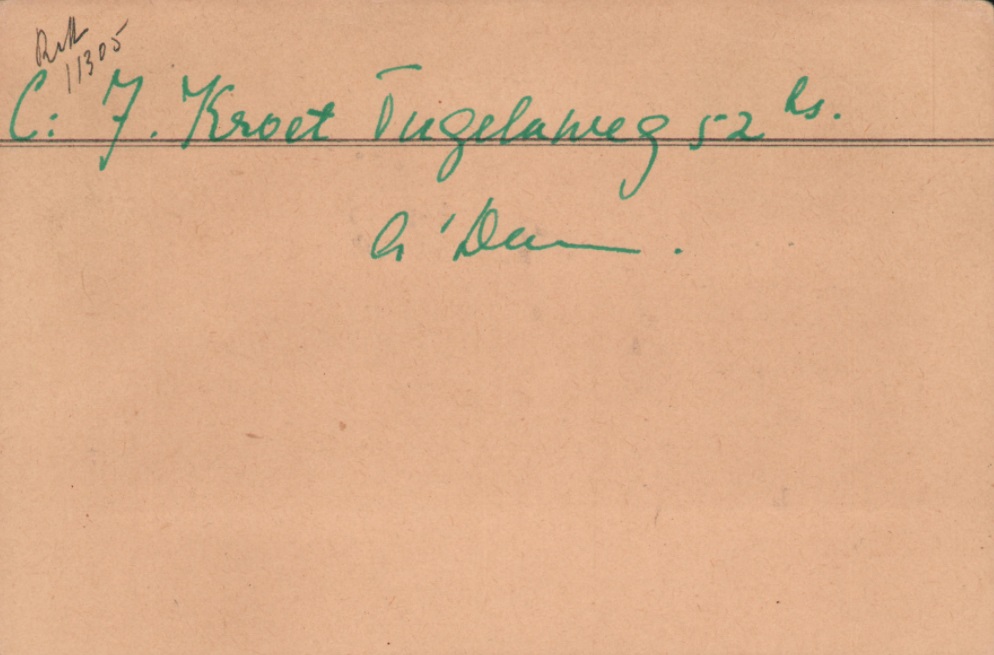 11305
C: J. Kroet Tugelaweg 52 hs.
A'Dam.